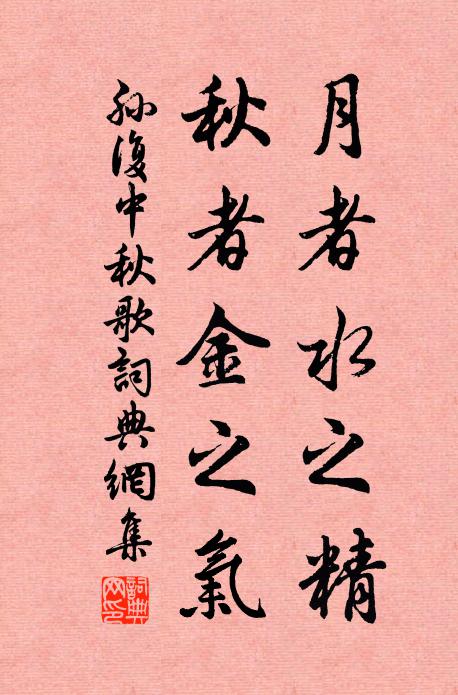 月者水之精
秋者金之氣
孫復中秋歌詞典網集
詞典網印